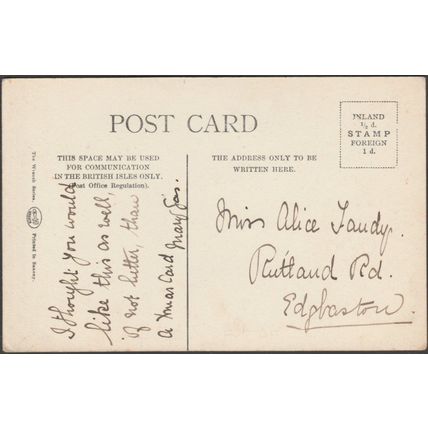 POST CARD
INLAND
½ d.
STAMP
FOREIGN
1 d.
THIS SPACE MAY BE USED
FOR COMMUNICATION
IN THE BRITISH ISLES ONLY.
(Post Office Regulation).
THE ADDRESS ONLY TO BE
WRITTEN HERE.
The Wrench Series.
Printed in Saxony.
I thought you would
like this as well,
if not better, than
a Xmas Card Mary
Miss Alice Tandy.
Rutland Rd.
Edgbaston.